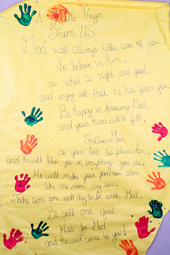 Prayer
From US
God will always take care of you
So believe in him,
do what is right and good,
and enjoy all that he has given you
Be happy in knowing God,
and your heart will be full.
Follow God,
do your best to please him,
and he will bless you in everything you do.
He will make your goodness shine
like the noon day sun.
Take time each day to talk with God.
Be still and quiet
Wait for God
and he will come to you!